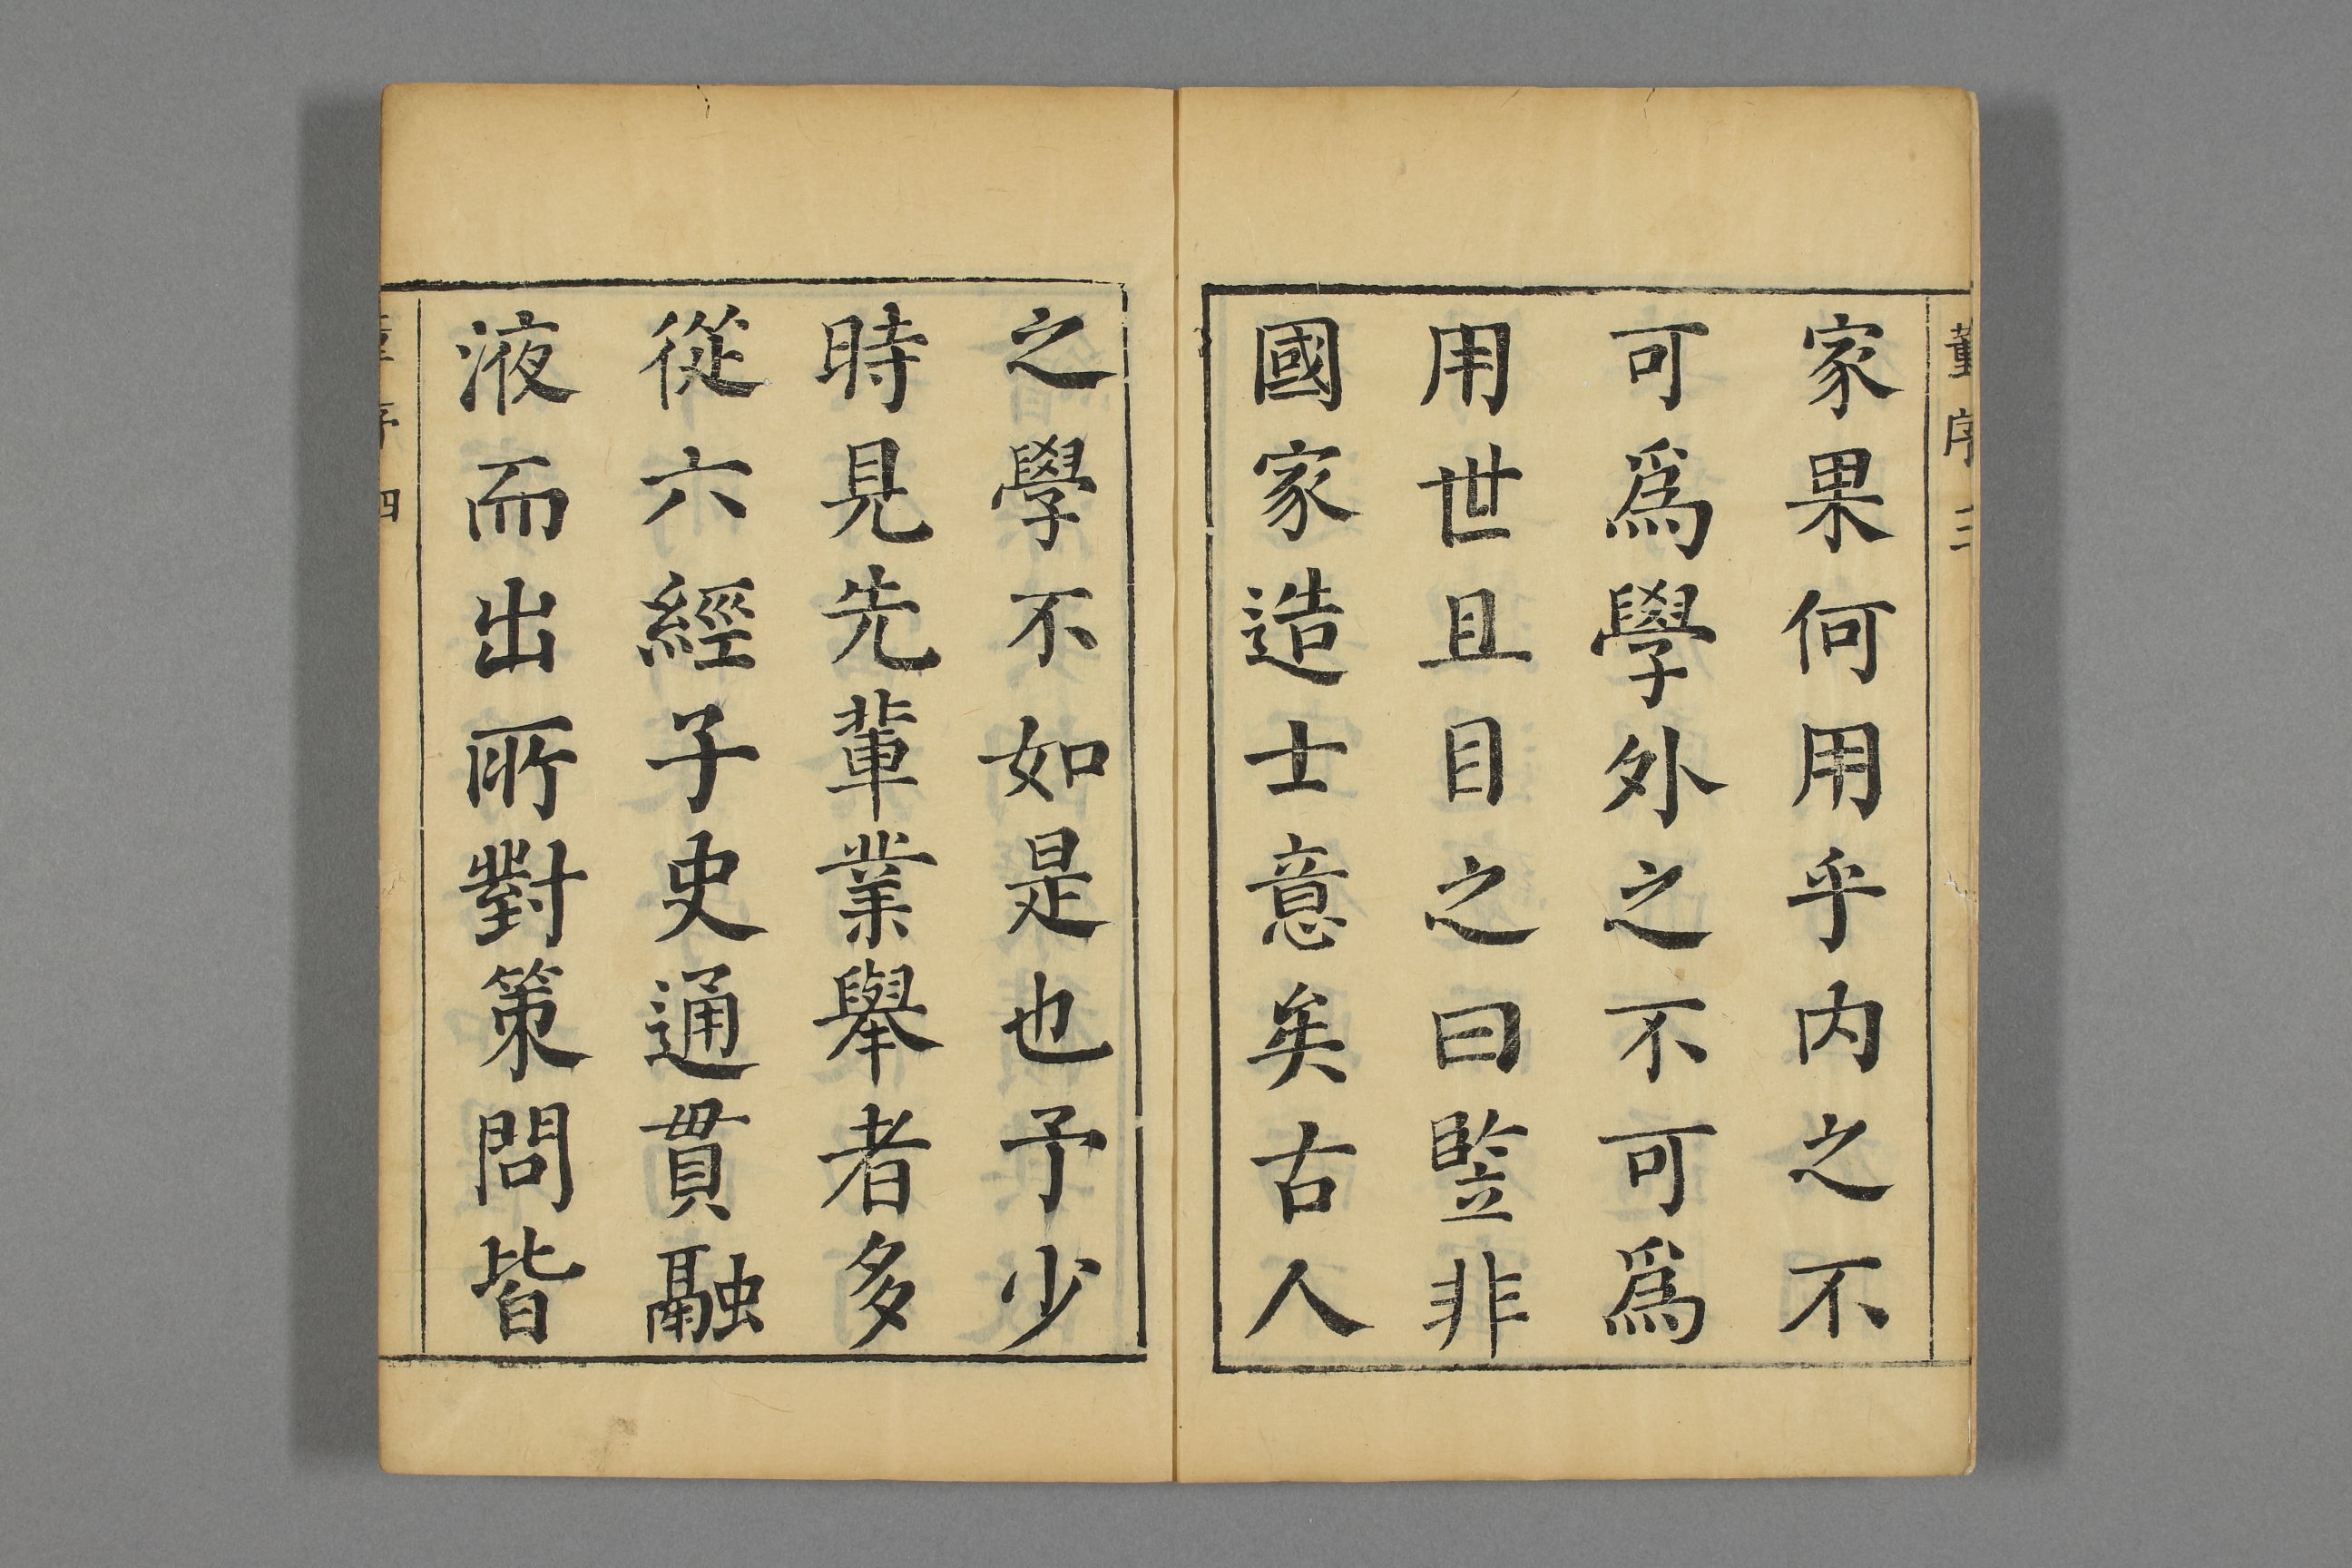 董序 三
家果何用乎内之不
可爲學外之不可爲
用世且目之曰竪非
國家造士意矣古人
之學不如是也予少
時見先輩業舉者多
從六經子史通貫融
液而出所對策問皆
董序 四